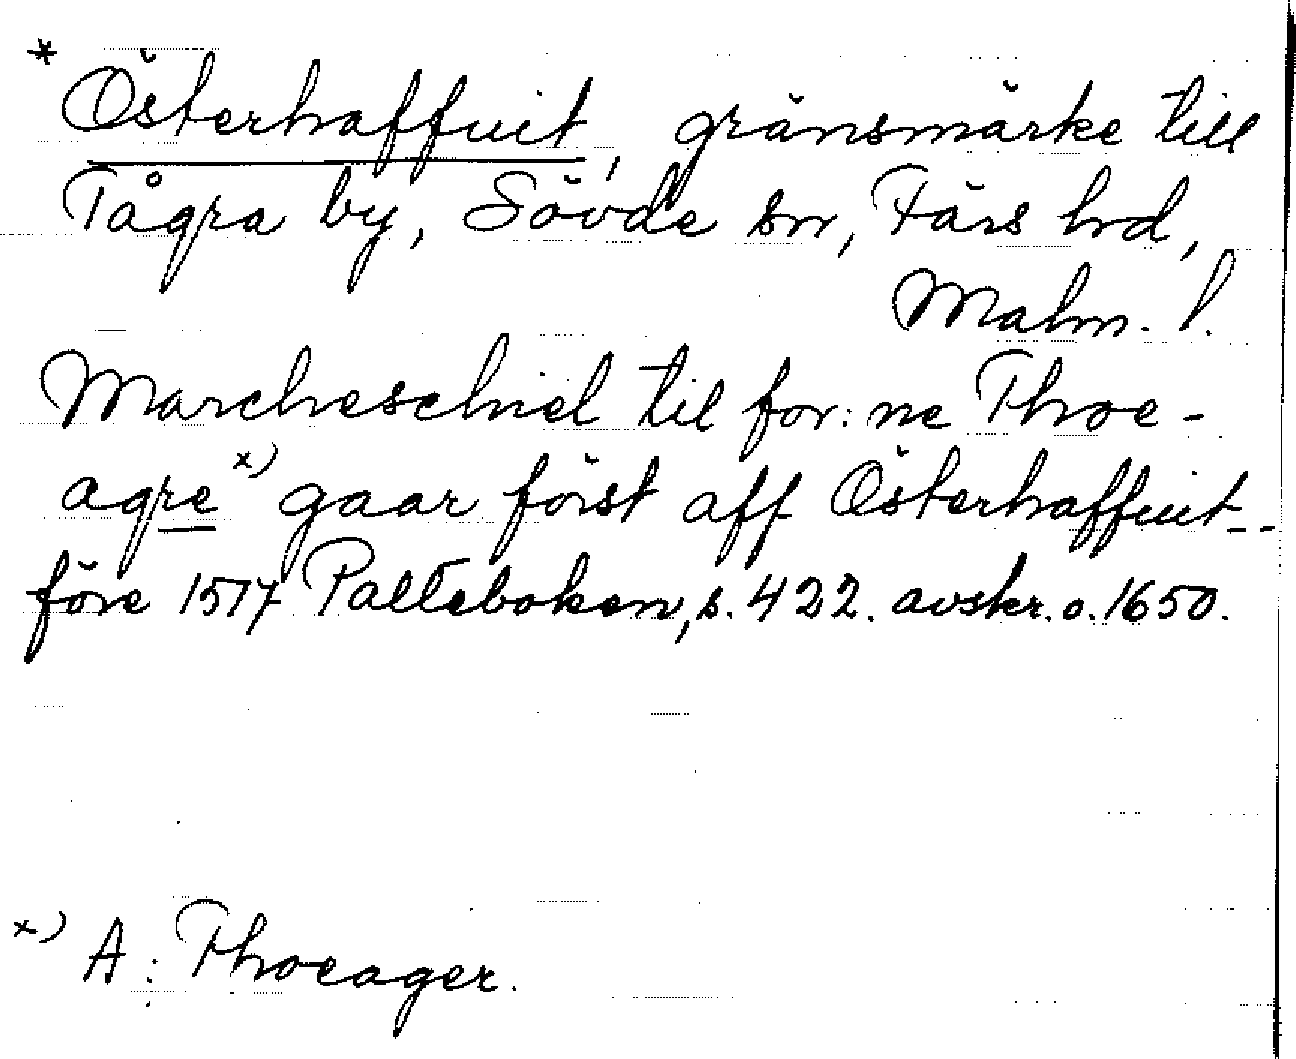 * Österhaffuit, gränsmärke till
Tågra by, Sövde sn, Färs hd,
Malm. l.
Marcheschiel til for:ne Thoe-
agre x) gaar först aff Österhaffuit--
före 1517 Palteboken, s. 422. avskr. o. 1650.
x) A: Thoeager.